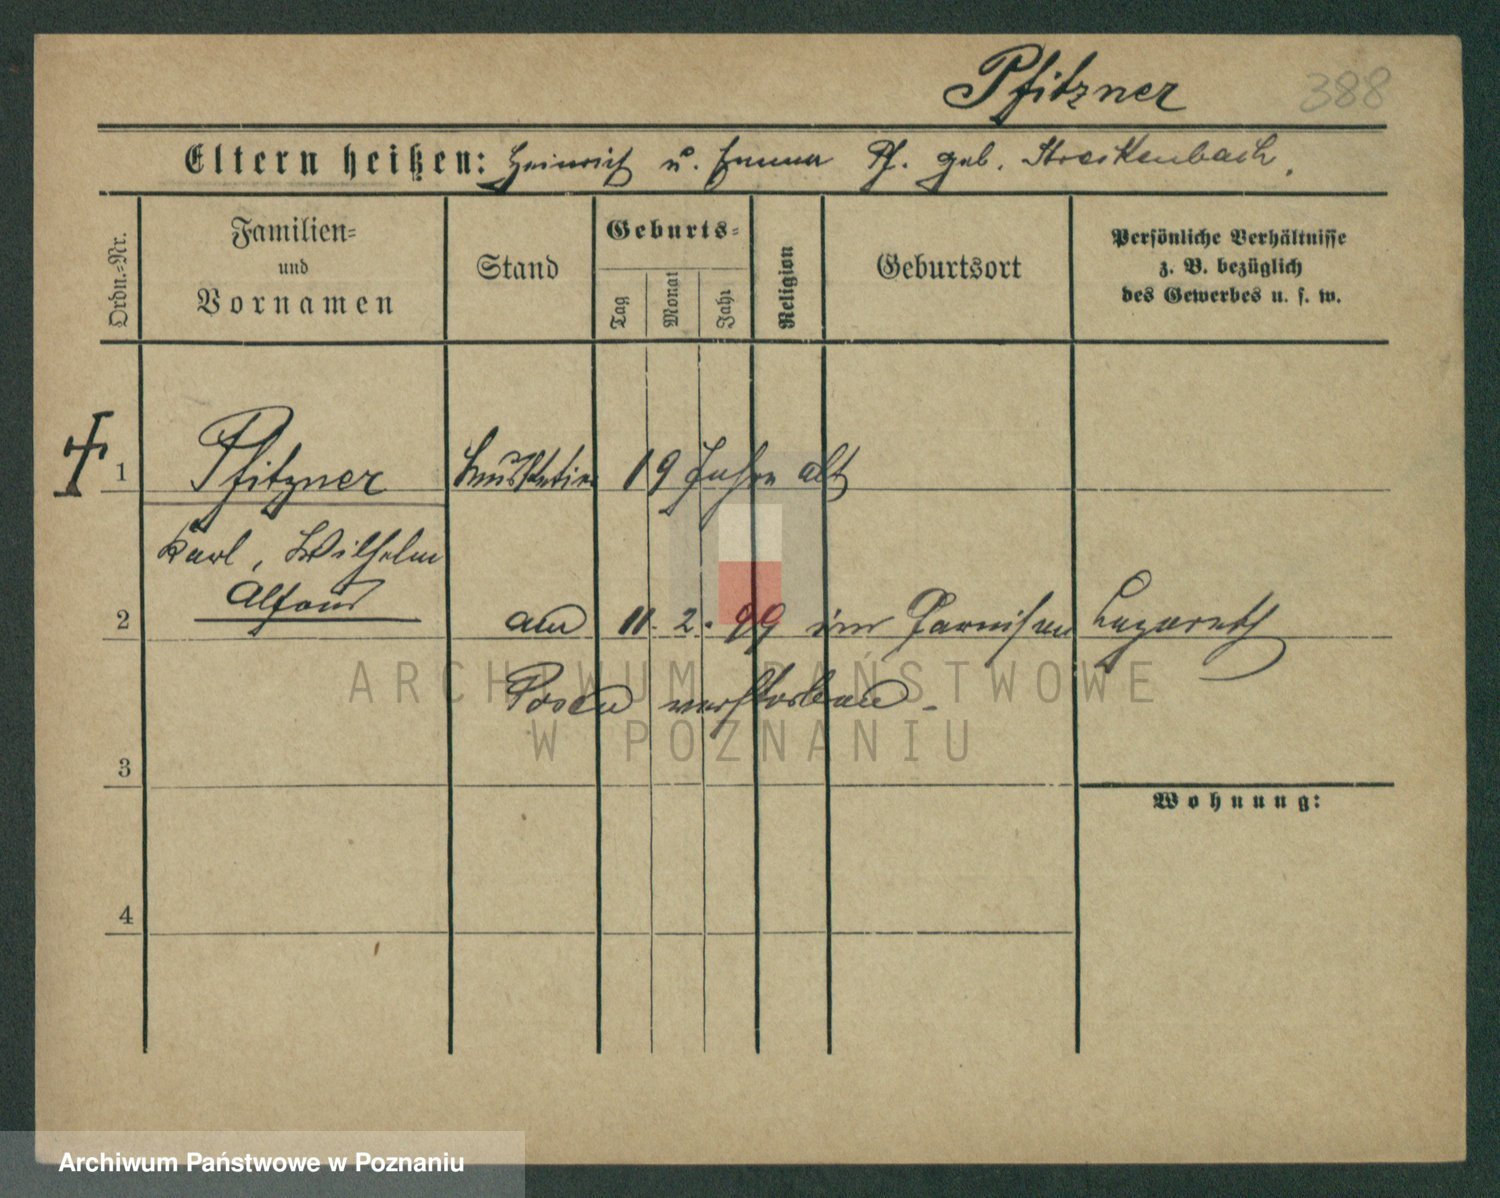 Pfitzner 388
Eltern heißen: Heinrich u. Emma Pf. geb. Streckenbach.
Ordn.=Nr.
Familien=
und
Vornamen
Stand
Geburts=
Tag
Monat
Jahr
Religion
Geburtsort
Persönliche Verhältnisse
z. B. bezüglich
des Gewerbes u. s. w.
1 Pfitzner Musketier 19 Jahre alt
Karl, Wilhelm
Alfons
2 am 11. 2. 99 im Garnison Lazareth
Posen verstorben.
3
Wohnung:
4
ARCHIWUM PAŃSTWOWE
W POZNANIU
Archiwum Państwowe w Poznaniu